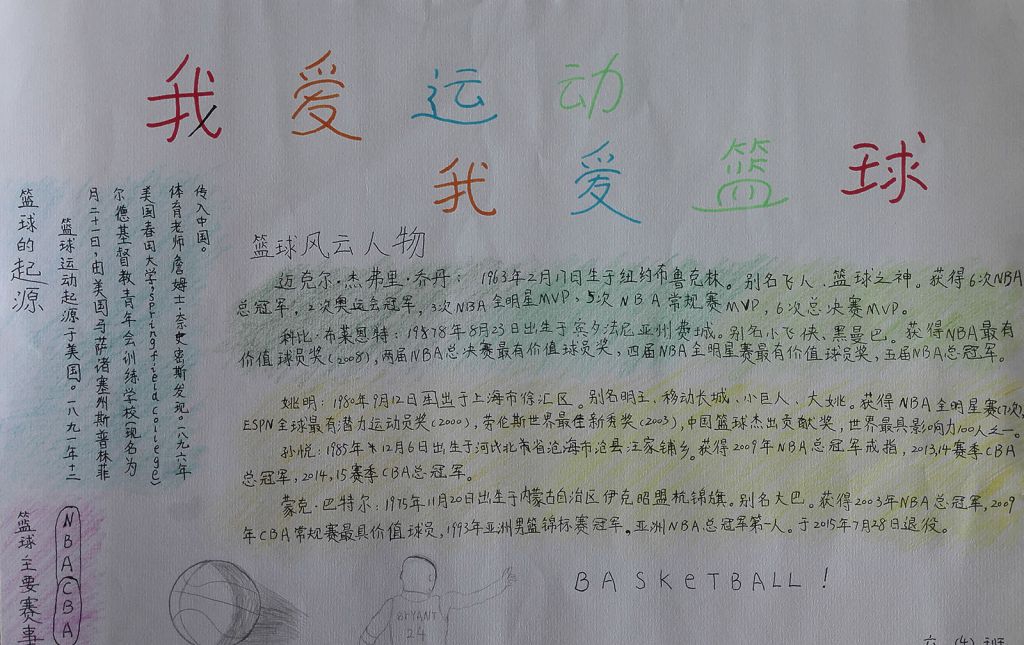 我爱运动
我爱篮球
篮球的起源
篮球运动起源于美国。一八九一年十二
月二十一日,由美国马萨诸塞州斯普林菲
尔德基督教青年会训练学校(现名为
美国春田大学,springfieldcollege)
体育老师詹姆士·奈史密斯发现。一八九六年
传入中国。
篮球风云人物
迈克尔·杰弗里·乔丹:1963年2月17日生于纽约布鲁克林。别名飞人、篮球之神。获得6次NBA
总冠军,2次奥运会冠军,3次NBA全明星MVP、5次NBA常规赛MVP,6次总决赛MVP。
科比·布莱恩特:1978年8月23日出生于宾夕法尼亚州费城。别名小飞侠、黑曼巴。获得NBA最有
价值球员奖(2008),两届NBA总决赛最有价值球员奖,四届NBA全明星赛最有价值球员奖,五届NBA总冠军。
姚明:1980年9月12日出于上海市徐汇区。别名明王、移动长城、小巨人、大姚。获得NBA全明星赛(7次)
ESPN全球最有潜力运动员奖(2000),劳伦斯世界最佳新秀奖(2003),中国篮球杰出贡献奖,世界最具影响力100人之一。
孙悦:1985年12月6日出生于河北省沧海市沧县汪家铺乡。获得2009年NBA总冠军戒指,2013,14赛季CBA
总冠军,2014,15赛季CBA总冠军。
蒙克·巴特尔:1975年11月20日出生于内蒙古自治区伊克昭盟杭锦旗。别名大巴。获得2003年NBA总冠军,2009
年CBA常规赛最具价值球员,1993年亚洲男篮锦标赛冠军。亚洲NBA总冠军第一人。于2015年7月28日退役。
篮球主要赛事
NBA
CBA
BRYANT
24
BASKeTBALL!
六(4)班